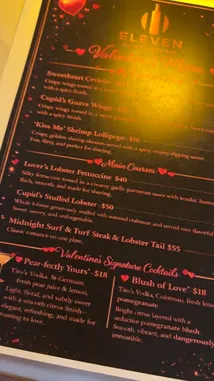 ELEVEN
Valentine's
Sweetheart Ceviche
Crispy wings tossed in a
with a spicy finish.
Cupid's Guava Wings
Crispy wings tossed in a
with a spicy finish.
'Kiss Me' Shrimp Lollipops $16
Crispy, golden shrimp skewers served with a spicy dipping sauce.
Fun, flirty, and perfect
Main Courses
Lover's Lobster Fettuccine $40
Silky fettuccine tossed in a creamy garlic-parmesan sauce with tender, buttery
Rich, smooth, and made for sharing.
Cupid's Stuffed Lobster $50
Whole lobster generously stuffed with seasoned crabmeat and served over
Sweet, savory, and unforgettable.
Midnight Surf & Turf Steak & Lobster Tail $55
Classic romance on one plate.
Valentine's Signature Cocktails
Pear-fectly Yours* -$18
Tito's Vodka, St-Germain,
fresh pear juice & lemon.
Light, floral, and subtly sweet
with a smooth citrus finish—
elegant, refreshing, and made for
toasting to love.
Blush of Love* $18
Tito's Vodka, Cointreau, fresh lemon
pomegranate.
Bright citrus layered with a
seductive pomegranate blush.
Smooth, vibrant, and dangerously
irresistible.